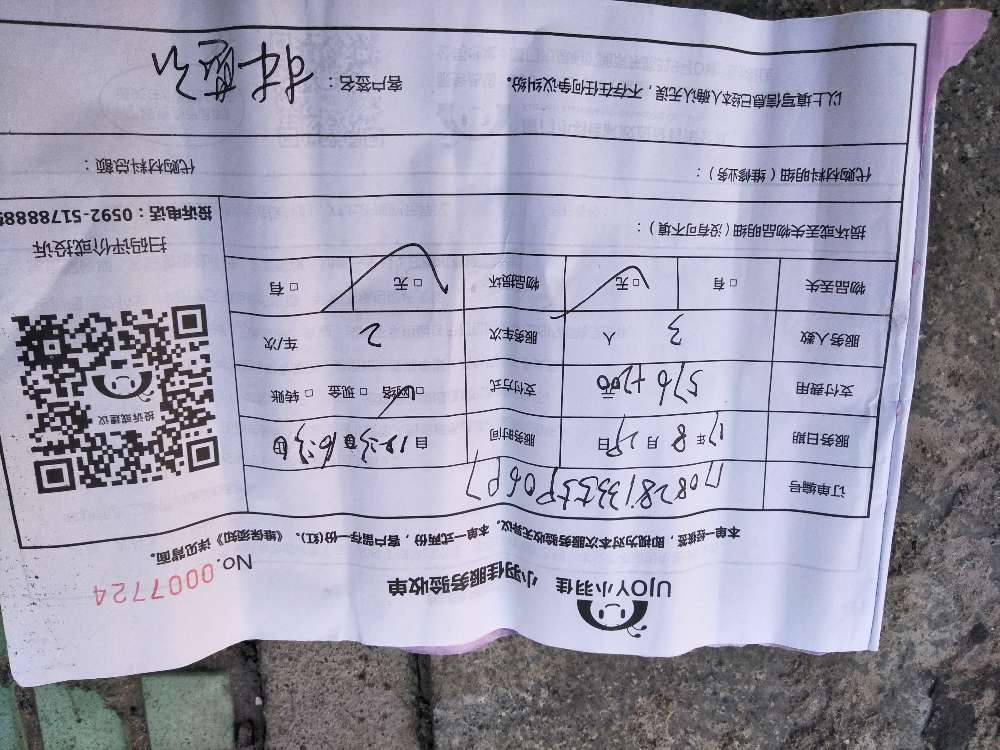 UJOY小羽佳 小羽佳服务验收单
No.0007724
本单一经签, 即视为对本次服务验收无异议。 本单一式两份, 客户留存一份(红)。《维保须知》详见背面。
订单编号
服务日期 17 年 8 月 29 日 服务时间 自
支付费用 576+200 元 支付方式 □网络 □现金 □转账
服务人数 3 人 服务车次 2 车/次
物品丢失 □有 □无 物品损坏 □无 □有
投诉或建议
扫码评价或投诉
投诉电话:0592-5178888
损坏或丢失物品明细(没有可不填):
代购材料明细(维修业务): 代购材料总额:
以上填写信息已经本人确认无误, 不存在任何争议纠纷。 客户签名: